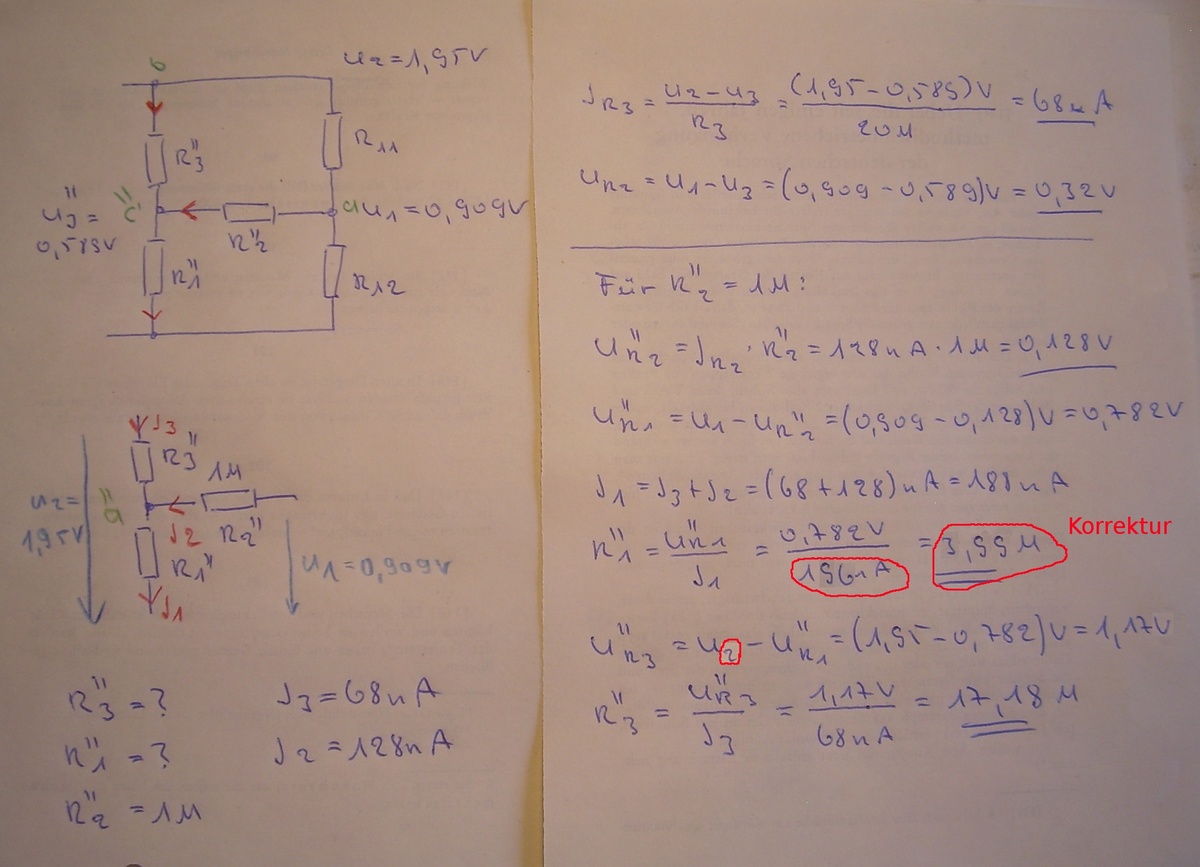 b
U2 = 1,95V
R3''
R11
U3'' =
0,589V
c''
a
U1 = 0,909V
R2''
R1''
R12
J3
R3''
1M
U2 =
1,95V
a''
J2
R2''
R1''
J1
U1 = 0,909V
R3'' = ?
J3 = 68nA
R1'' = ?
J2 = 128nA
R2'' = 1M
JR3 = (U2 − U3) / R3 = (1,95 − 0,589)V / 20M = 68nA
UR2 = U1 − U3 = (0,909 − 0,589)V = 0,32V
Für R2'' = 1M:
UR2'' = JR2 · R2'' = 128nA · 1M = 0,128V
UR1'' = U1 − UR2'' = (0,909 − 0,128)V = 0,782V
J1 = J3 + J2 = (68 + 128)nA = 188nA
R1'' = UR1'' / J1 = 0,782V / 196nA = 3,99M
Korrektur
UR3'' = U2 − UR1'' = (1,95 − 0,782)V = 1,17V
R3'' = UR3'' / J3 = 1,17V / 68nA = 17,18M